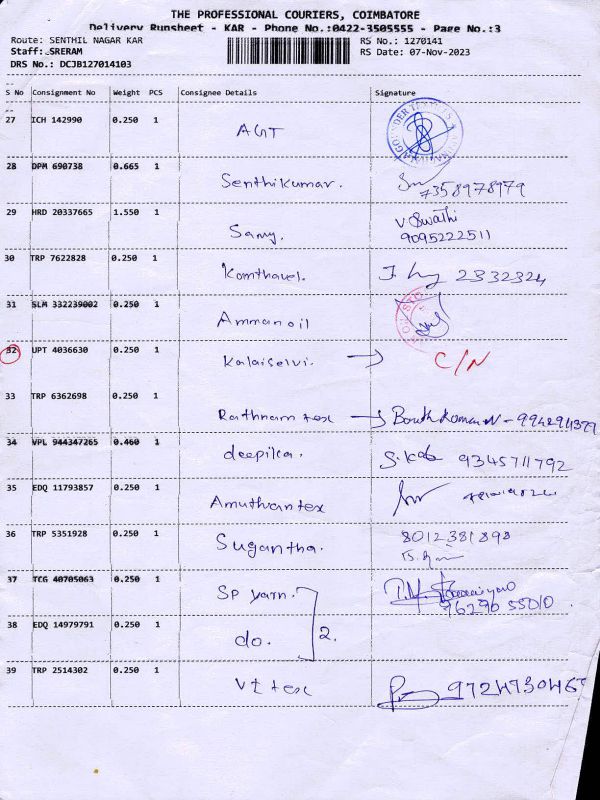 THE PROFESSIONAL COURIERS, COIMBATORE
Delivery Runsheet - KAR - Phone No.:0422-3505555 - Page No.:3
Route: SENTHIL NAGAR KAR RS No.: 1270141
Staff: SRERAM RS Date: 07-Nov-2023
DRS No.: DCJB127014103
S No Consignment No Weight PCS Consignee Details Signature
27 ICH 142990 0.250 1 AGT
28 DPM 690738 0.665 1 Senthilkumar. 7358978979
29 HRD 20337665 1.550 1 Samy. V. Swathi
9095222511
30 TRP 7622828 0.250 1 Komthavel. 2332324
31 SLM 332239002 0.250 1 Ammanoil
32 UPT 4036630 0.250 1 Kalaiselvi. → C/N
33 TRP 6362698 0.250 1 Rathnam tex →
34 VPL 944347265 0.460 1 deepika. 9345711792
35 EDQ 11793857 0.250 1 Amuthantex
36 TRP 5351928 0.250 1 Sugantha. 8012381898
37 TCG 40705063 0.250 1 SP yarn. 96290 55010
38 EDQ 14979791 0.250 1 do. 2.
39 TRP 2514302 0.250 1 Vt tex